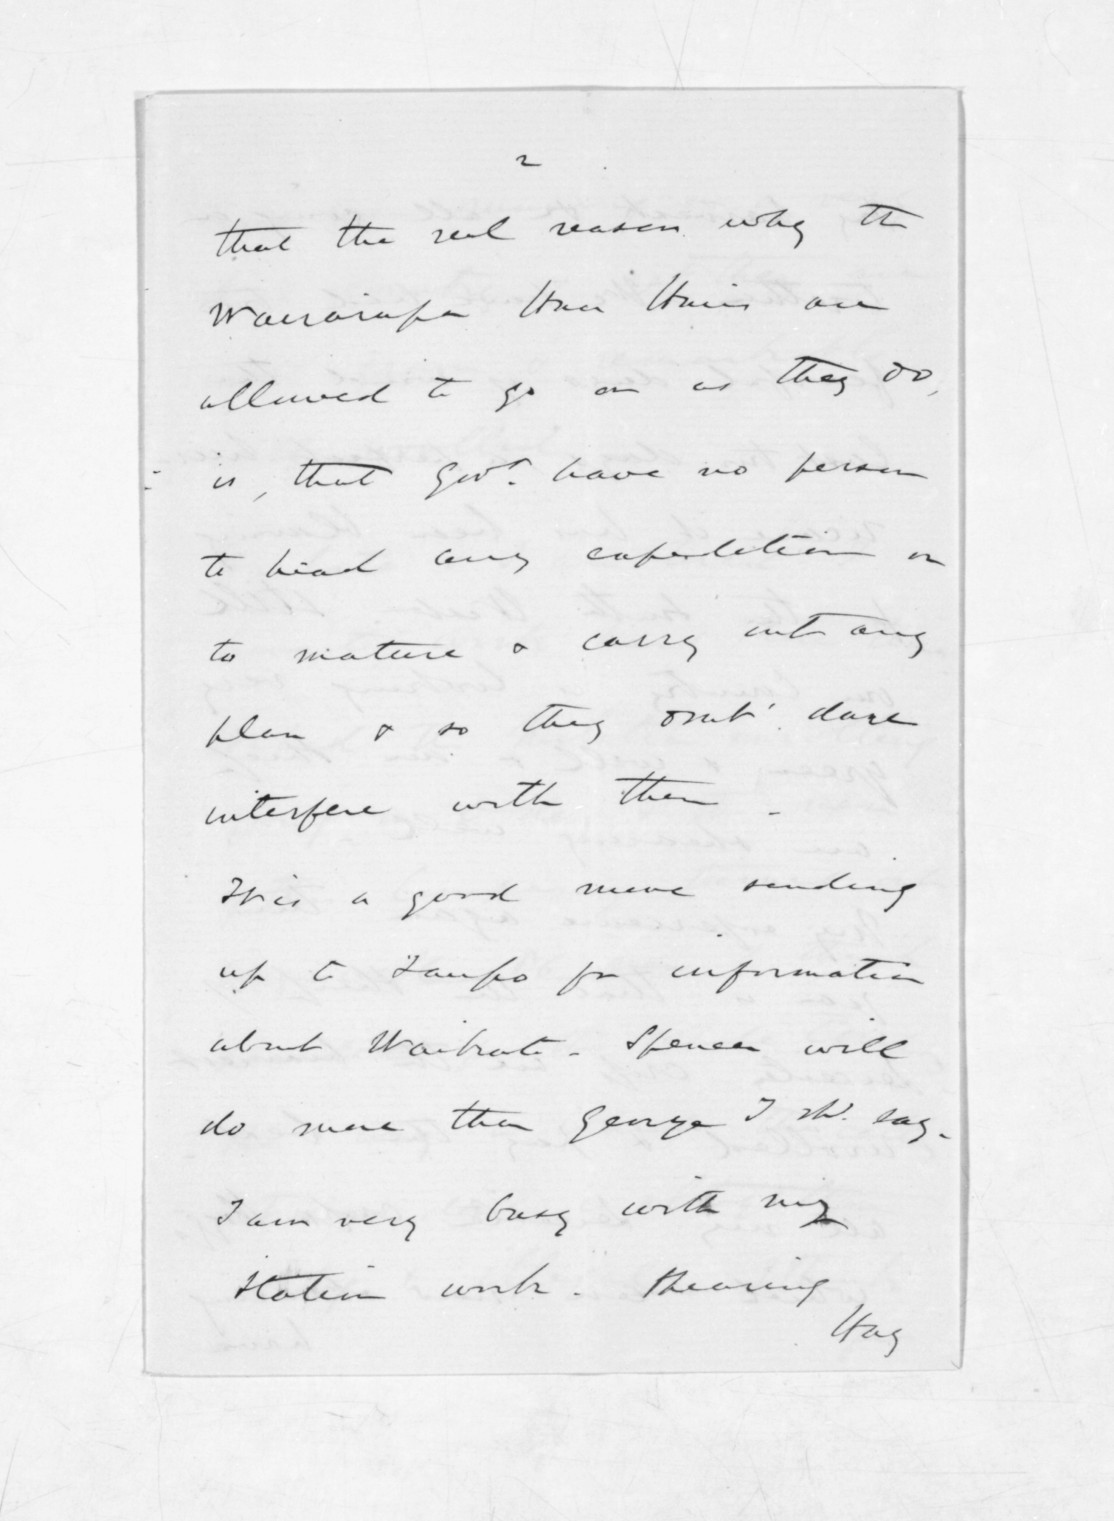 2
that the real reason why the
Wairarapa Hau Haus are
allowed to go on as they do,
is, that Govt. have no person
to head any expedition or
to mature & carry out any
plan & so they dont dare
interfere with them -
It is a good move sending
up to Taupo for information
about Waikato - Spencer will
do more than George I shd. say -
I am very busy with my
Station work - Shearing
Hay